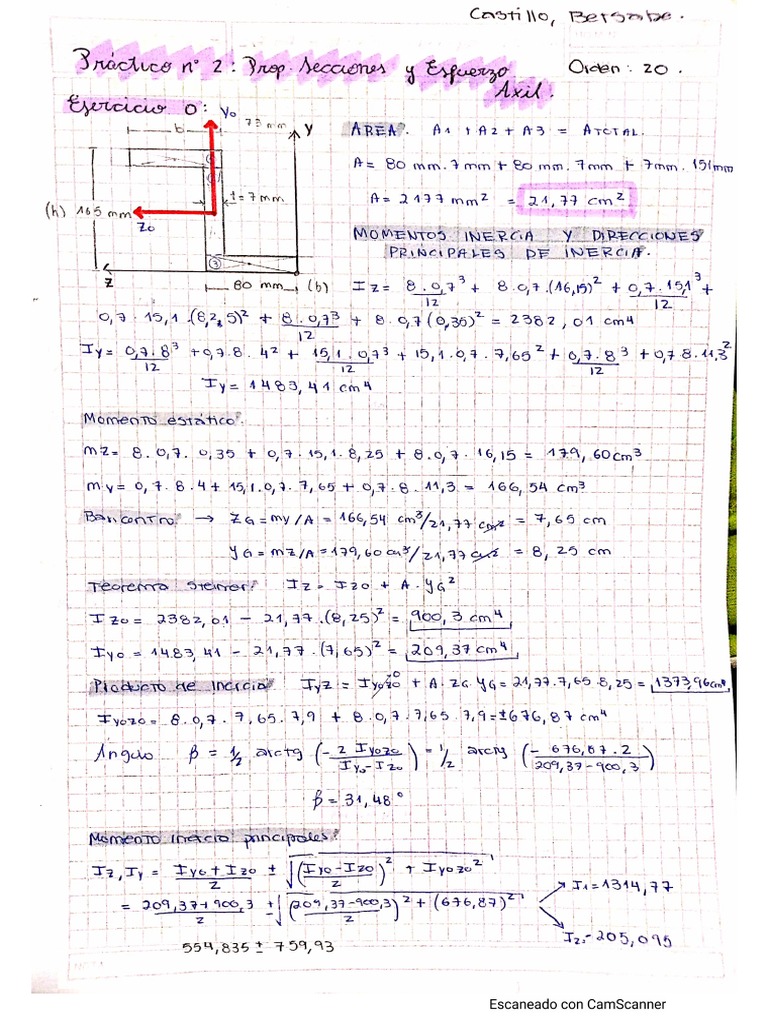 Castillo, Bersabe.
Práctico n° 2: Prop. Secciones y Esfuerzo
Axil.
Orden: 20.
Ejercicio 0:
y0
73 mm
y
b
t = 7 mm
(h) 165 mm
z0
3
z
80 mm (b)
AREA: A1 + A2 + A3 = ATOTAL.
A = 80 mm . 7 mm + 80 mm . 7mm + 7mm . 151mm
A = 2177 mm² = 21,77 cm²
MOMENTOS INERCIA Y DIRECCIONES
PRINCIPALES DE INERCIA.
Iz = 8 . 0,7³/12 + 8 . 0,7 . (16,15)² + 0,7 . 15,1³/12 +
0,7 . 15,1 . (8,25)² + 8 . 0,7³/12 + 8 . 0,7 (0,35)² = 2382,01 cm4
Iy = 0,7 . 8³/12 + 0,7 . 8 . 4² + 15,1 . 0,7³/12 + 15,1 . 0,7 . 7,65² + 0,7 . 8³/12 + 0,7 . 8 . 11,3²
Iy = 1483,41 cm4
Momento estático:
mz = 8 . 0,7 . 0,35 + 0,7 . 15,1 . 8,25 + 8 . 0,7 . 16,15 = 179,60 cm³
my = 0,7 . 8 . 4 + 15,1 . 0,7 . 7,65 + 0,7 . 8 . 11,3 = 166,54 cm³
Baricentro: → ZG = my/A = 166,54 cm³/21,77 cm² = 7,65 cm
yG = mz/A = 179,60 cm³/21,77 cm² = 8,25 cm
Teorema Steiner: Iz = Iz0 + A . yG²
Iz0 = 2382,01 - 21,77 . (8,25)² = 900,3 cm4
Iy0 = 1483,41 - 21,77 . (7,65)² = 209,37 cm4
Producto de inercia: Iyz = Iy0z0 + A . ZG . yG = 21,77 . 7,65 . 8,25 = 1373,96 cm4
0
Iy0z0 = 8 . 0,7 . 7,65 . 7,9 + 8 . 0,7 . 7,65 . 7,9 = ±676,87 cm4
Ángulo β = 1/2 arctg (-2 Iy0z0/Iy0 - Iz0) = 1/2 arctg (- 676,87 . 2/209,37 - 900,3)
β = 31,48°
Momento inercia principales:
Iz, Iy = Iy0 + Iz0/2 ± √(Iy0 - Iz0/2)² + Iy0z0²
= 209,37 + 900,3/2 ± √(209,37 - 900,3/2)² + (676,87)²
I1 = 1314,77
I2 = -205,095
554,835 ± 759,93
Escaneado con CamScanner